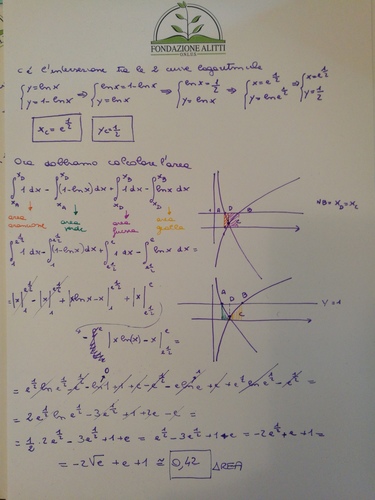 FONDAZIONE ALITTI
C è l'intersezione tra le 2 curve logaritmiche
{y=lnx {y=1-lnx ⇒ {lnx=1-lnx {y=lnx ⇒ {lnx=1/2 {y=lnx ⇒ {x=e^(1/2) {y=lne^(1/2) ⇒ {x=e^(1/2) {y=1/2
x_C=e^(1/2) y_C=1/2
Ora dobbiamo calcolare l'area
∫_(x_A)^(x_D) 1dx - ∫_(x_A)^(x_D) (1-lnx)dx + ∫_(x_D)^(x_B) 1dx - ∫_(x_D)^(x_B) lnx dx
NB= x_D=x_C
area arancione area verde area fucsia area gialla
A D B
∫_1^(e^(1/2)) 1dx - ∫_1^(e^(1/2)) (1-lnx)dx + ∫_(e^(1/2))^e 1dx - ∫_(e^(1/2))^e lnx dx =
= |x|_1^(e^(1/2)) - |x|_1^(e^(1/2)) + |xlnx-x|_1^(e^(1/2)) + |x|_(e^(1/2))^e
A D B
y=1
C
- |x ln(x) - x|_(e^(1/2))^e =
= e^(1/2) lne^(1/2) - e^(1/2) - ln1 + 1 + e - e^(1/2) - elne + e + e^(1/2) lne^(1/2) - e^(1/2) =
= 2e^(1/2) lne^(1/2) - 3e^(1/2) + 1 + 2e - e =
= 1/2 · 2e^(1/2) - 3e^(1/2) + 1 + e = e^(1/2) - 3e^(1/2) + 1 + e = -2e^(1/2) + e + 1 =
= -2√e + e + 1 ≅ 0,42 AREA